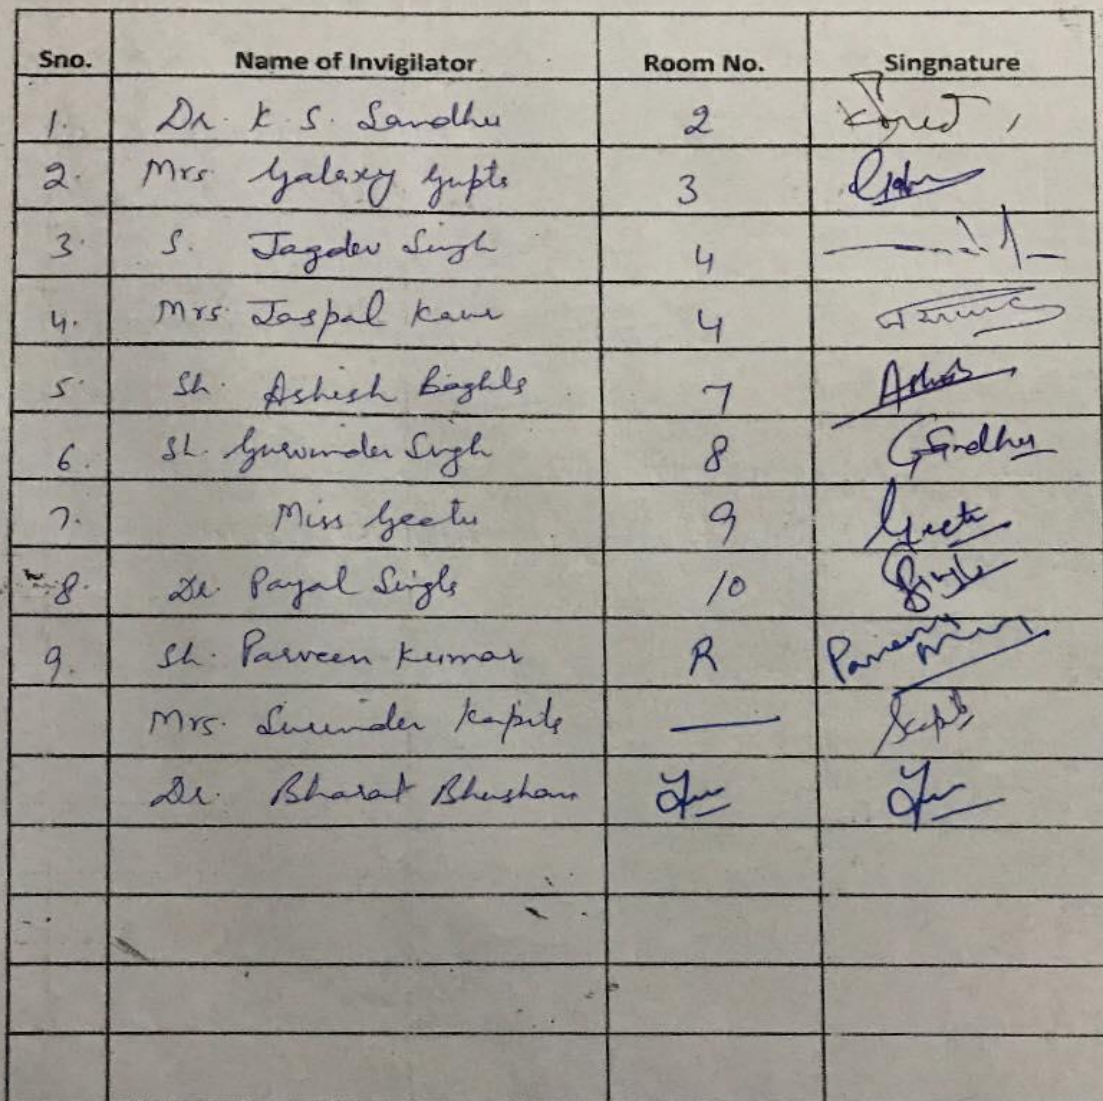 Sno. Name of Invigilator Room No. Singnature
1. Dr. K. S. Sandhu 2
2. Mrs. Galaxy Gupta 3
3. S. Jagdev Singh 4
4. Mrs. Jaspal Kaur 4
5. Sh. Ashish Baghla 7 Ashish
6. Sh. Gurvinder Singh 8 GSandhu
7. Miss Geetu 9 Geetu
8. Dr. Payal Singla 10 Singla
9. Sh. Parveen Kumar R Parveen
Mrs. Surinder Kapila —
Dr. Bharat Bhushan